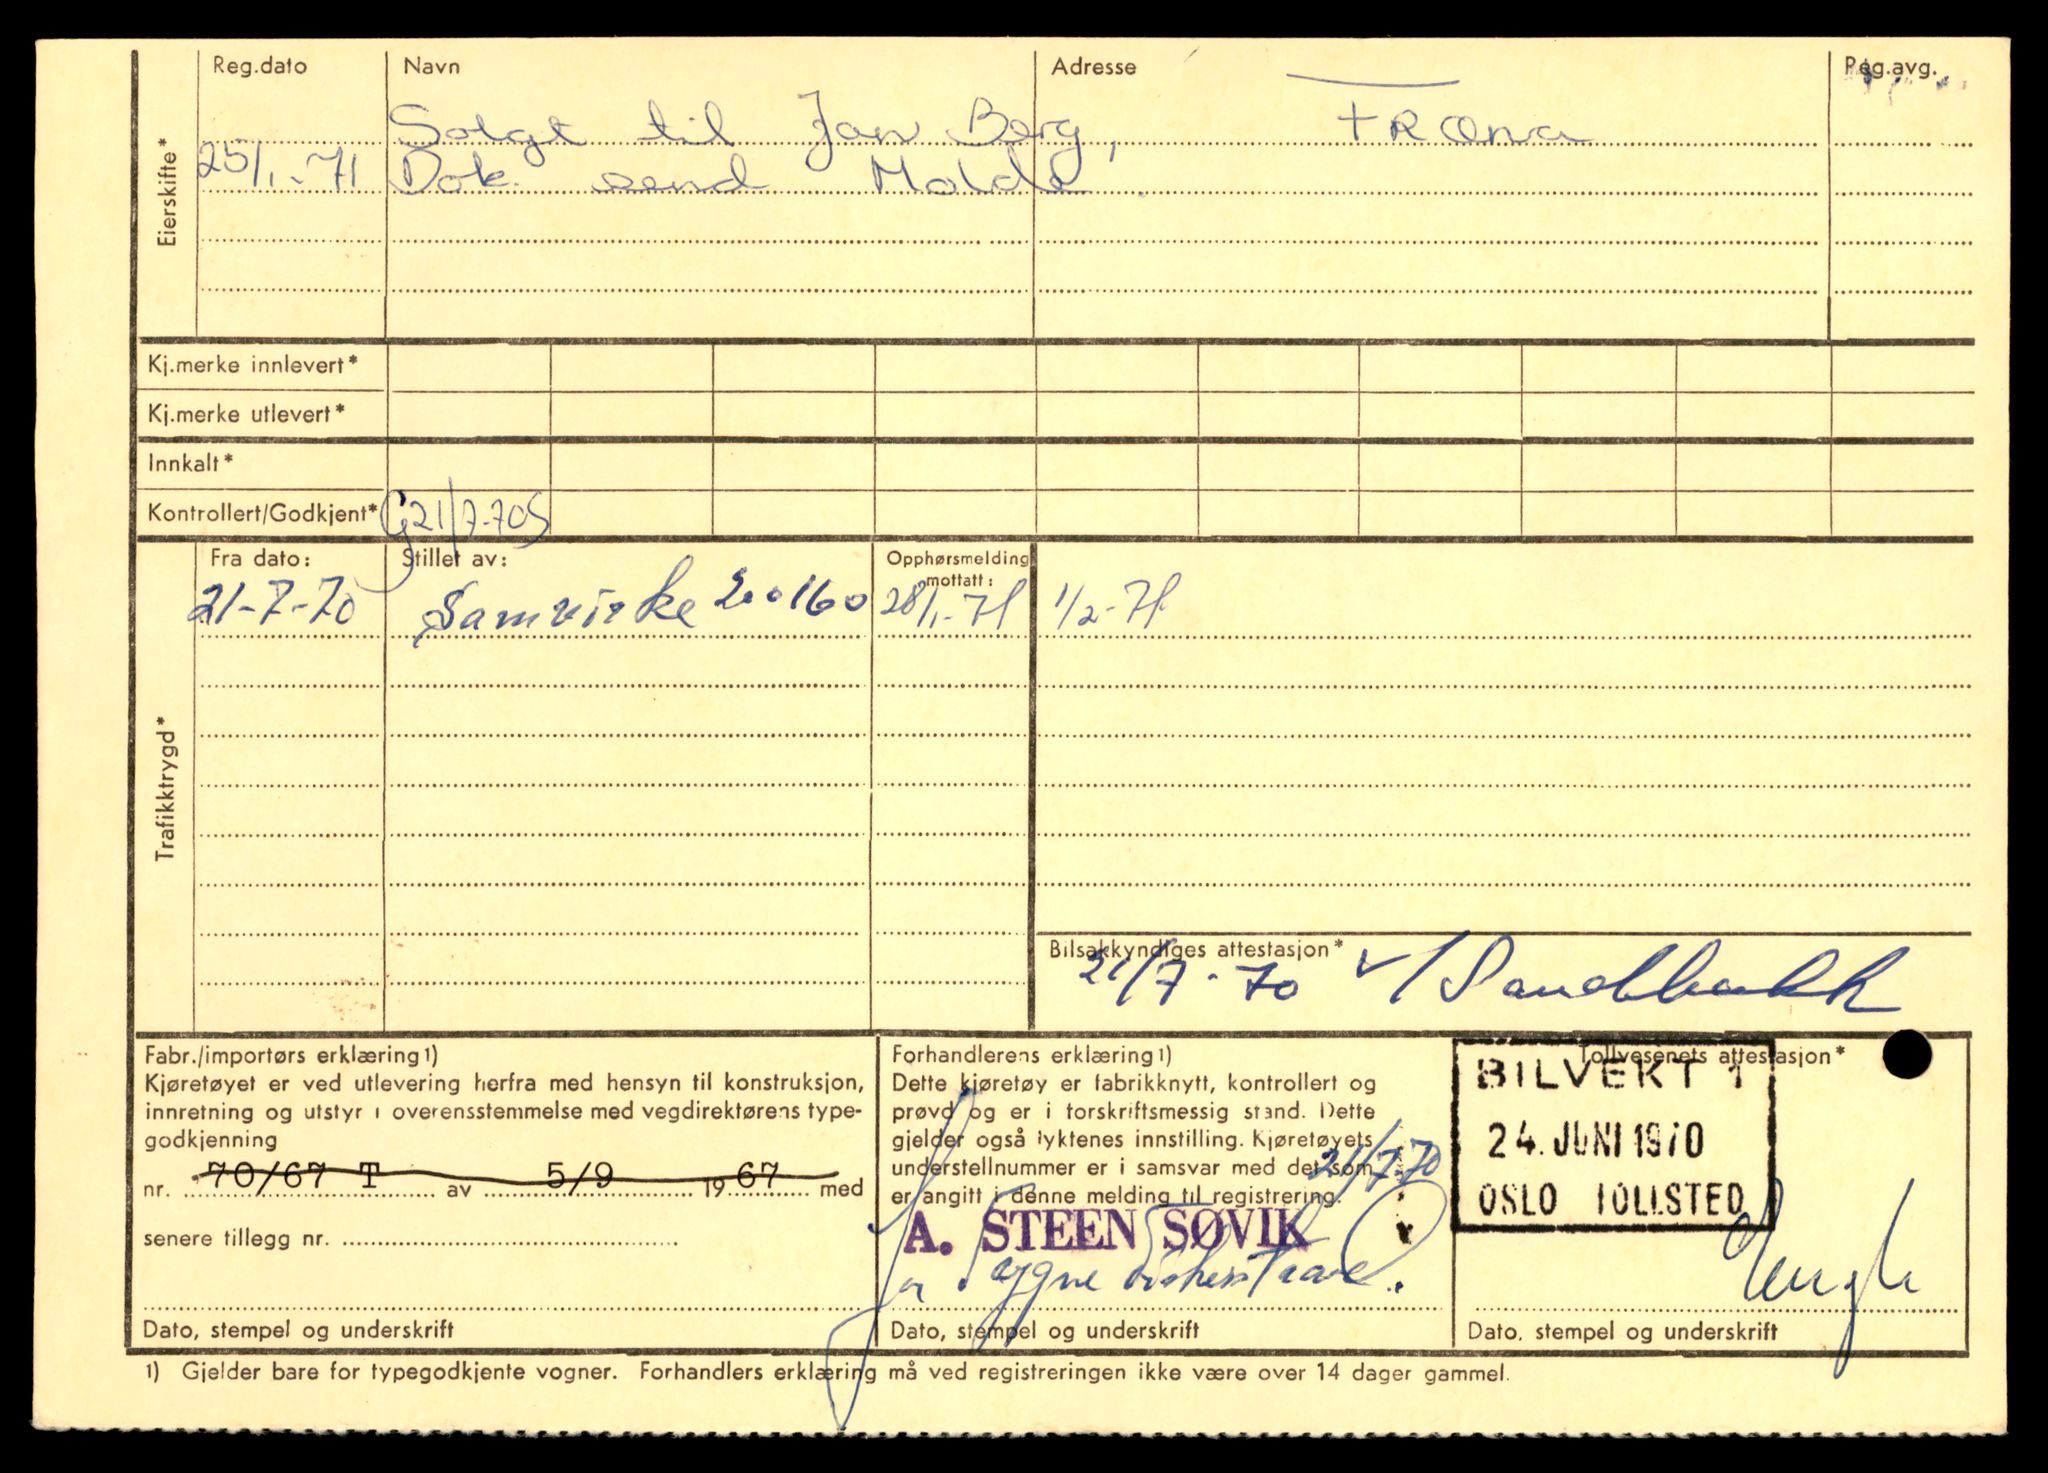 Reg.dato Navn Adresse Reg.avg.
Eierskifte*
Solgt til Jan Berg, Fræna
25/1-71 Dok. send Molde.
Kj.merke innlevert*
Kj.merke utlevert*
Innkalt*
Kontrollert/Godkjent* G21/7-70S
Trafikktrygd*
Fra dato: Stillet av: Opphørsmelding
mottatt:
21-7-70 Samvirke 200160 28/1-71 1/2-71
Bilsakkyndiges attestasjon*
21/7-70 v/Sandbakk
Fabr./importørs erklæring1)
Kjøretøyet er ved utlevering herfra med hensyn til konstruksjon,
innretning og utstyr i overensstemmelse med vegdirektørens type-
godkjenning
nr. 70/67 T av 5/9 1967 med
senere tillegg nr.
Dato, stempel og underskrift
Forhandlerens erklæring1)
Dette kjøretøy er fabrikknytt, kontrollert og
prøvd og er i forskriftsmessig stand. Dette
gjelder også lyktenes innstilling. Kjøretøyets
understellnummer er i samsvar med det som
er angitt i denne melding til registrering.
21/7-70
A. STEEN SØVIK
Dato, stempel og underskrift
Tollvesenets attestasjon*
BILVEKT 1
24. JUNI 1970
OSLO TOLLSTED
Dato, stempel og underskrift
1) Gjelder bare for typegodkjente vogner. Forhandlers erklæring må ved registreringen ikke være over 14 dager gammel.